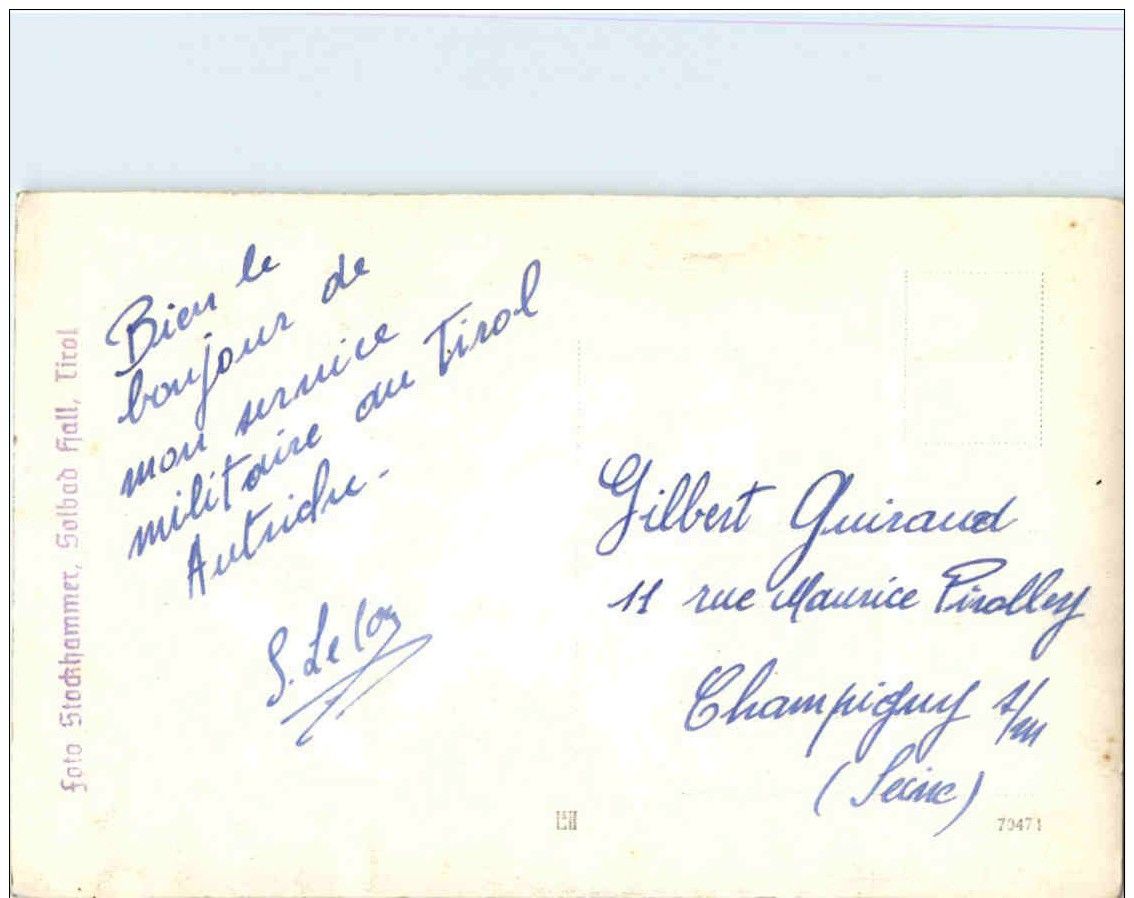 Foto Stockhammer, Solbad Hall, Tirol
Bien le
bonjour de
mon service
militaire au Tirol
Autriche -
Gilbert Guiraud
11 rue Maurice
Champigny s/m
(Seine)